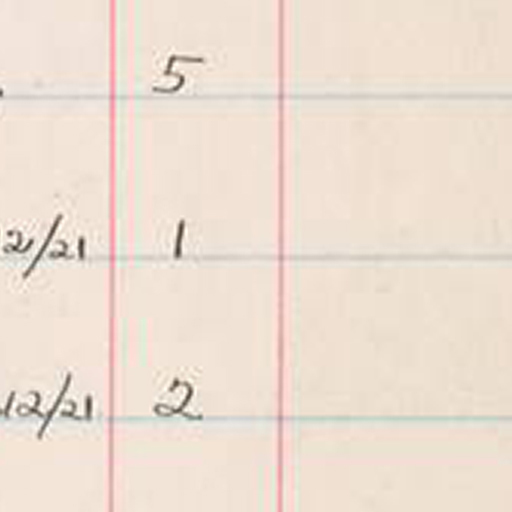 5
2/21 1
12/21 2